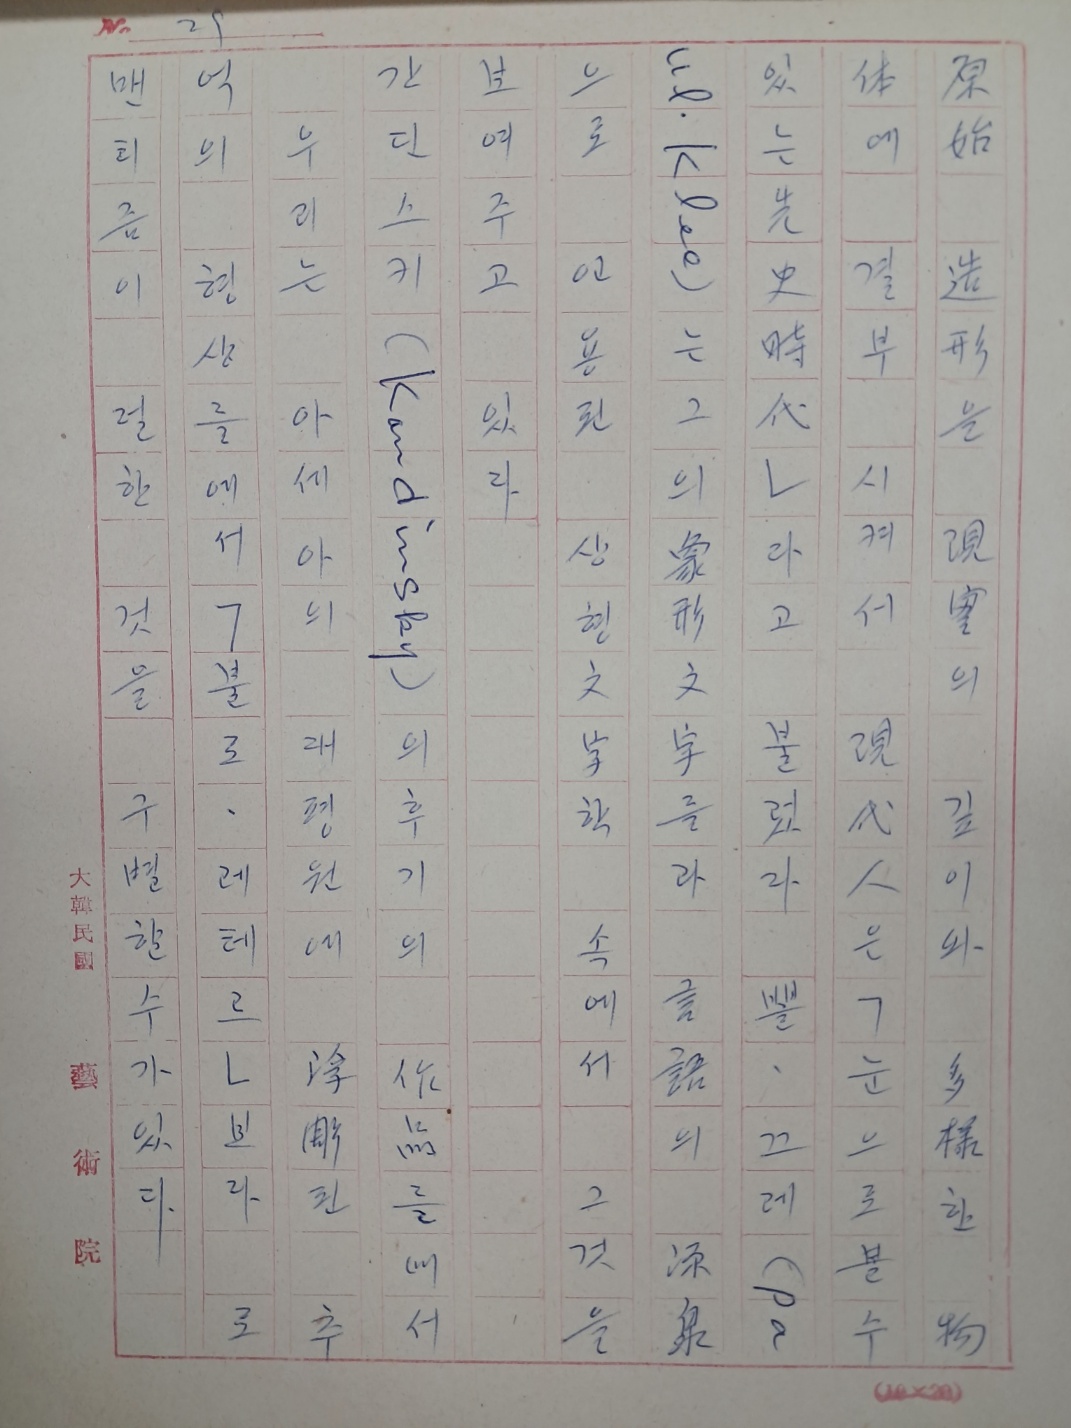 No. 29
原始 造形을 現實의 깊이와 多樣한 物
体에 결부 시켜서 現代人은「눈으로 볼 수
있는 先史時代」라고 불렀라 뽈、끄레 (pa
ul. klee) 는 그의 象形文字를 라 語의 源泉
으로 인용된 상현文字학 속에서 그것을
보여주고 있라
간딘스키 (Kandinsky) 의 후기의 作品를 에서
우리는 아세아의 대평원에 浮彫된 추
억의 형상를에서「볼로、레테르」보라 로
맨티즘이 럴한 것을 구별할 수가 있다.
大韓民國 藝術院
(10×20)